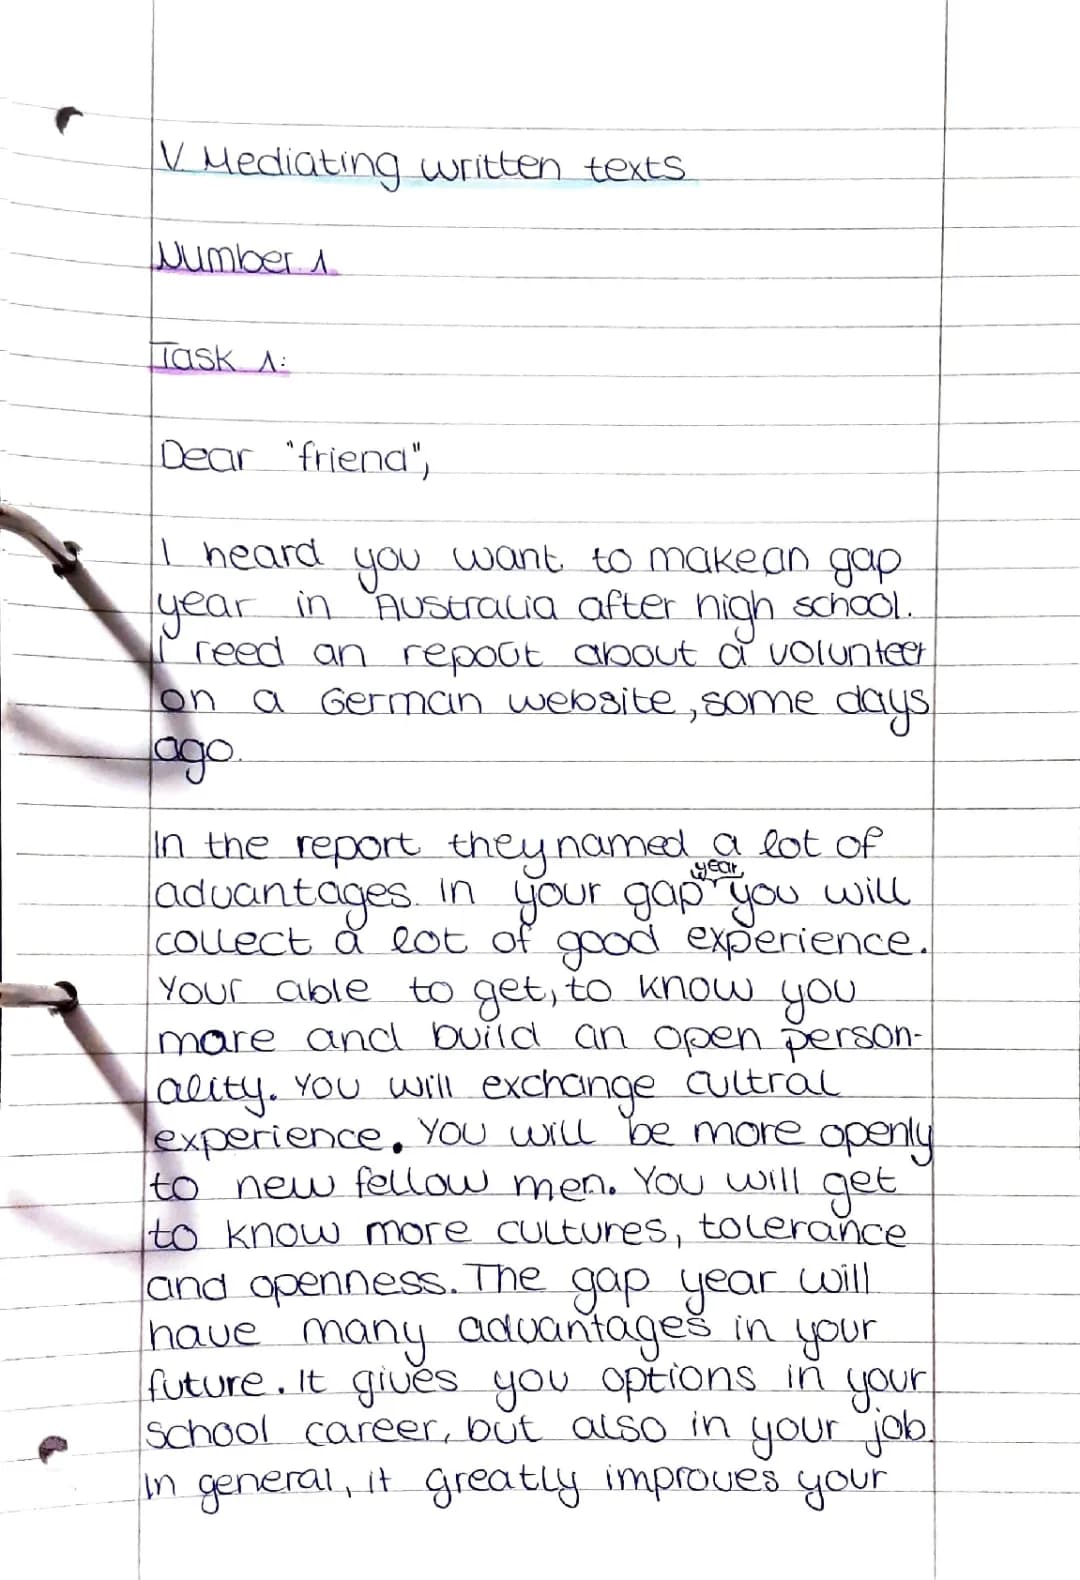 V Mediating written texts
Number 1
Task 1:
Dear "friend",
I heard you want to make an gap
year in Australia after high school.
I reed an repoűt about a volunteer
on a German website, some days
ago.
In the report they named a lot of
advantages. In your gap year you will
collect a lot of good experience.
Your able to get, to know you
more and build an open person-
ality. You will exchange cultral
experience. You will be more openly
to new fellow men. You will get
to know more cultures, tolerance
and openness. The gap year will
have many advantages in your
future. It gives you options in your
school career, but also in your job.
In general, it greatly improves your